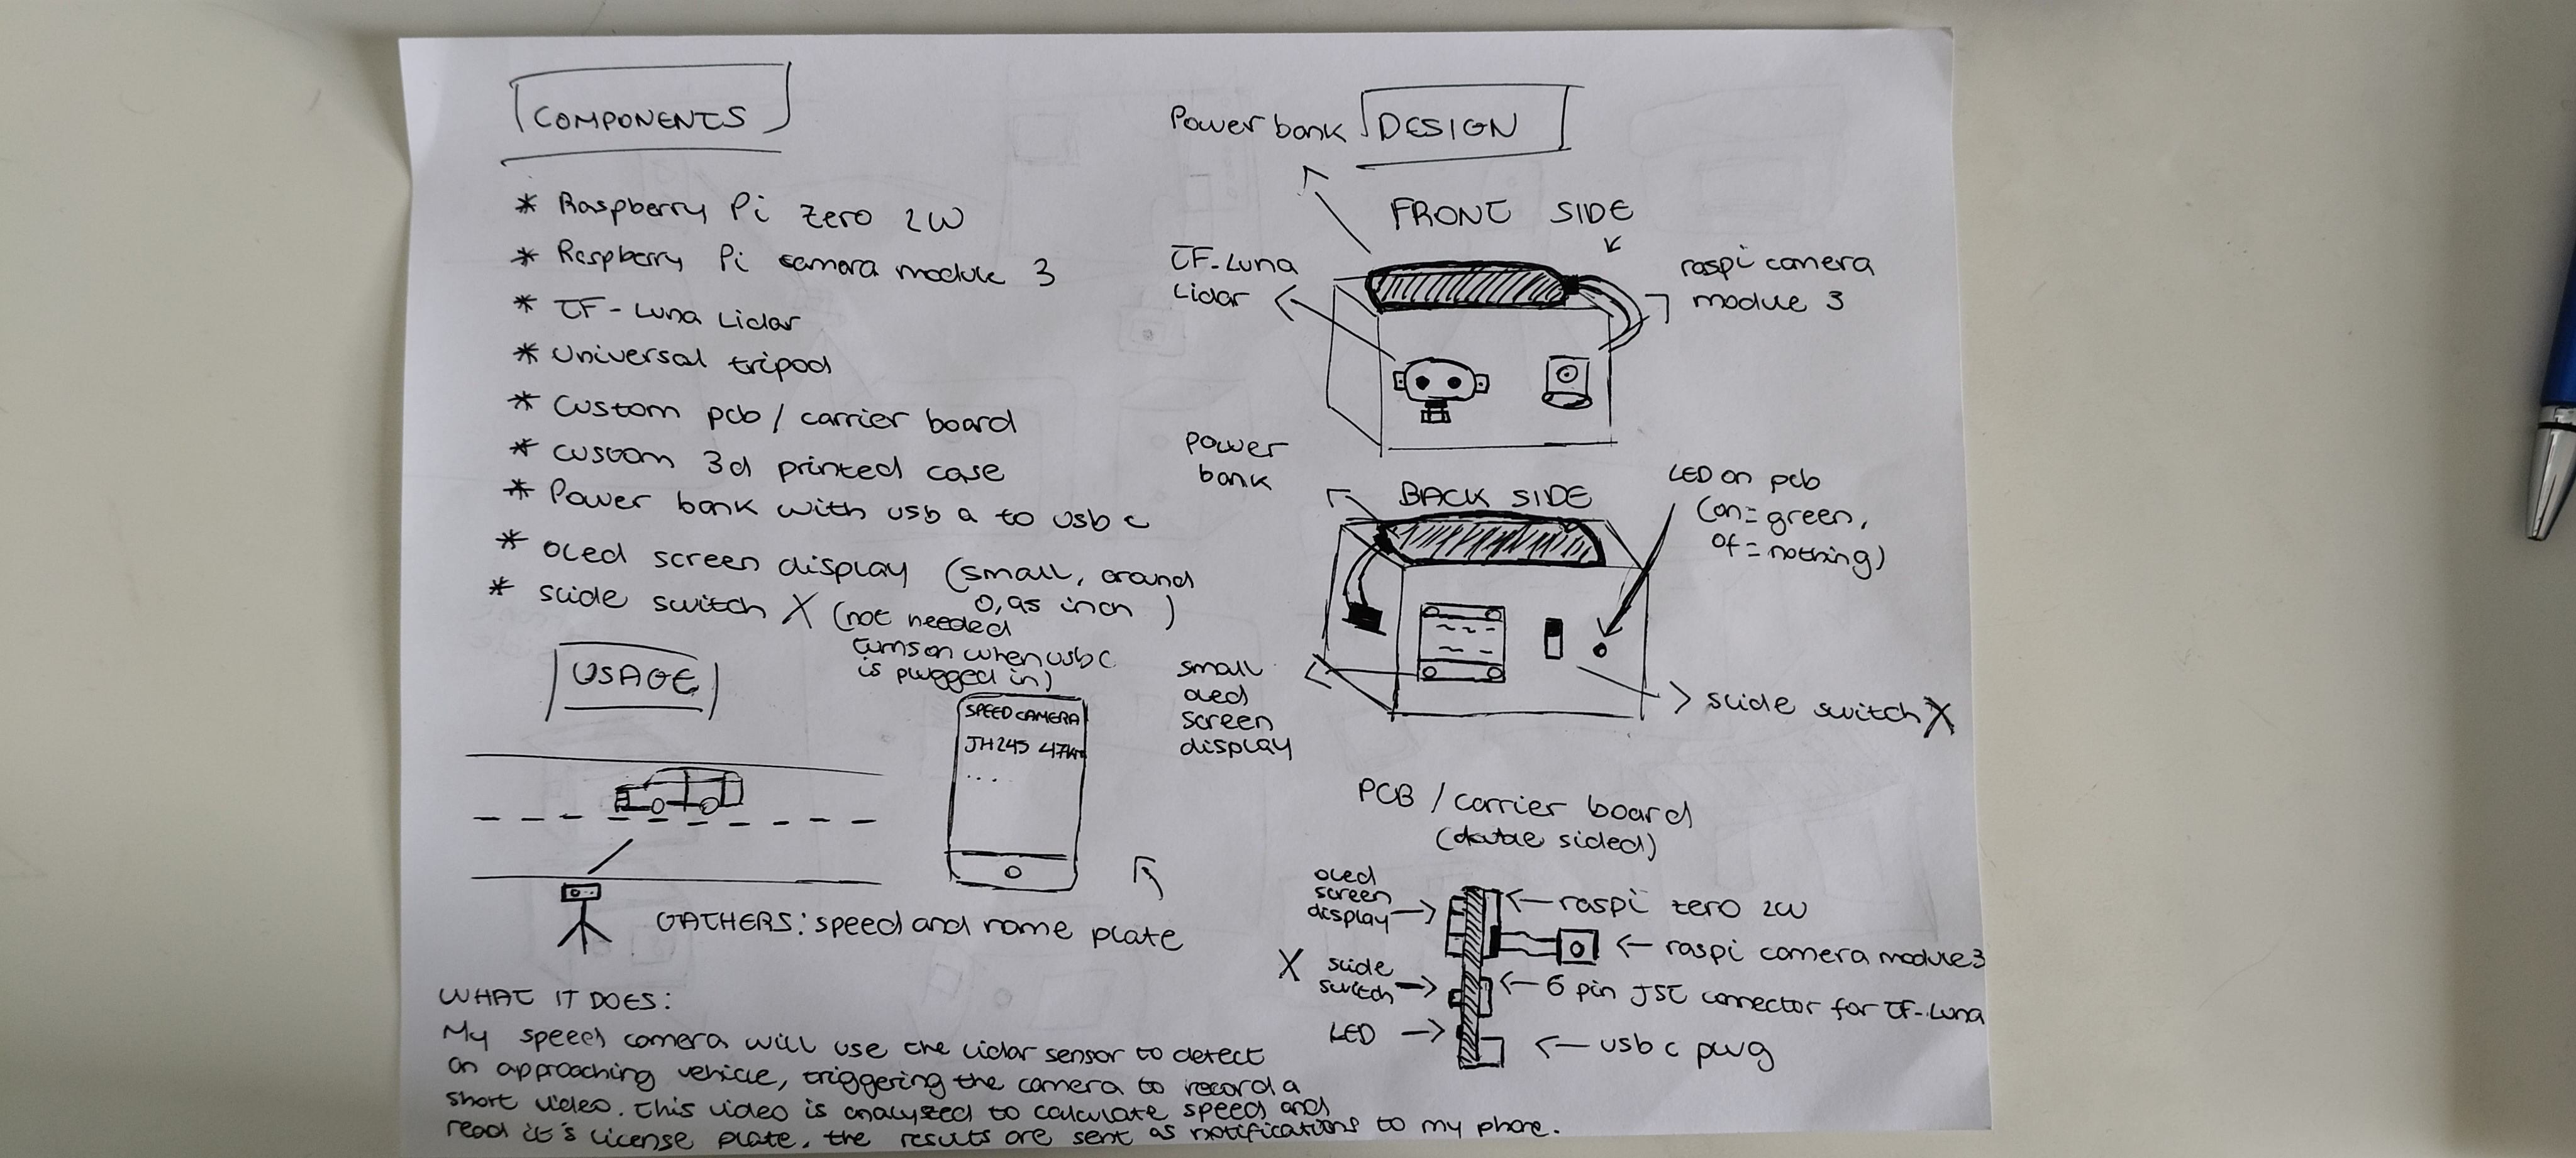 COMPONENTS
* Raspberry Pi zero 2W
* Raspberry Pi camera module 3
* TF-Luna Lidar
* Universal tripod
* Custom pcb / carrier board
* custom 3d printed case
* Power bank with usb a to usb c
* oled screen display (small, around
0,95 inch )
* slide switch X (not needed
turns on when usb c
is plugged in)
USAGE
SPEED CAMERA
JH245 47km
...
GATHERS: speed and name plate
WHAT IT DOES:
My speed camera will use the lidar sensor to detect
an approaching vehicle, triggering the camera to record a
short video. This video is analyszed to calculate speed and
read it's license plate, the results are sent as notifications to my phone.
Power bank
DESIGN
FRONT SIDE
TF-Luna
Lidar
raspi camera
module 3
power
bank
BACK SIDE
LED on pcb
(on = green,
of = nothing)
small
oled
screen
display
slide switch X
PCB / carrier board
(double sided)
oled
screen
display
raspi zero 2W
raspi camera module 3
X slide
switch
6 pin JST connector for TF-Luna
LED
usb c plug